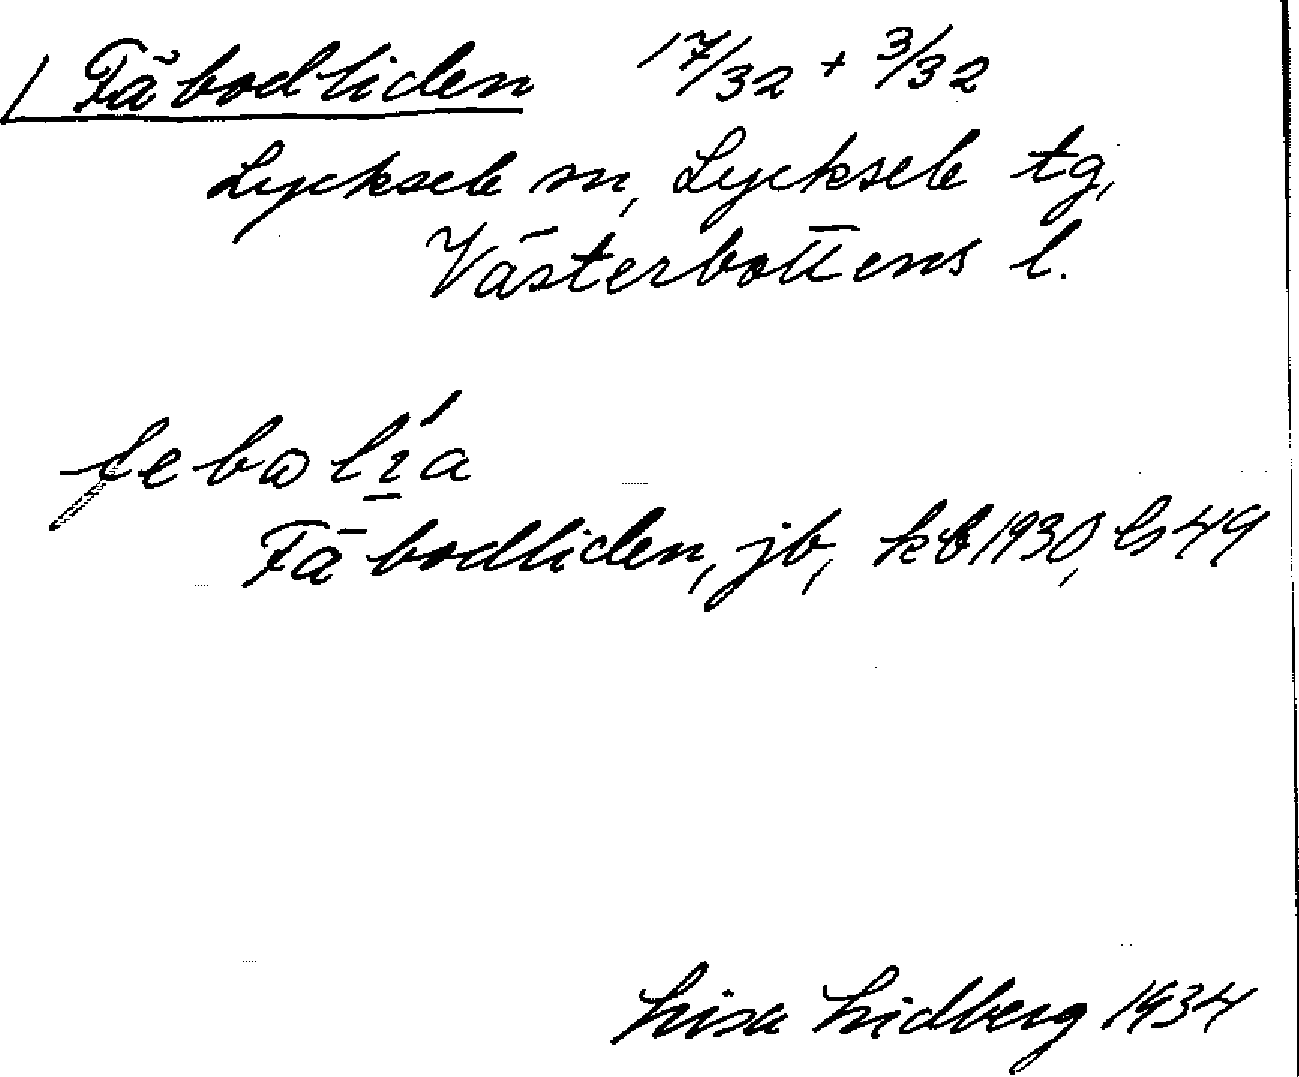 Fäbodliden 17/32 + 3/32
Lycksele sn, Lycksele tg,
Västerbottens l.
febolía
Fäbodliden, jb, kb 1930, bs 49
Lisa Lidberg 1934